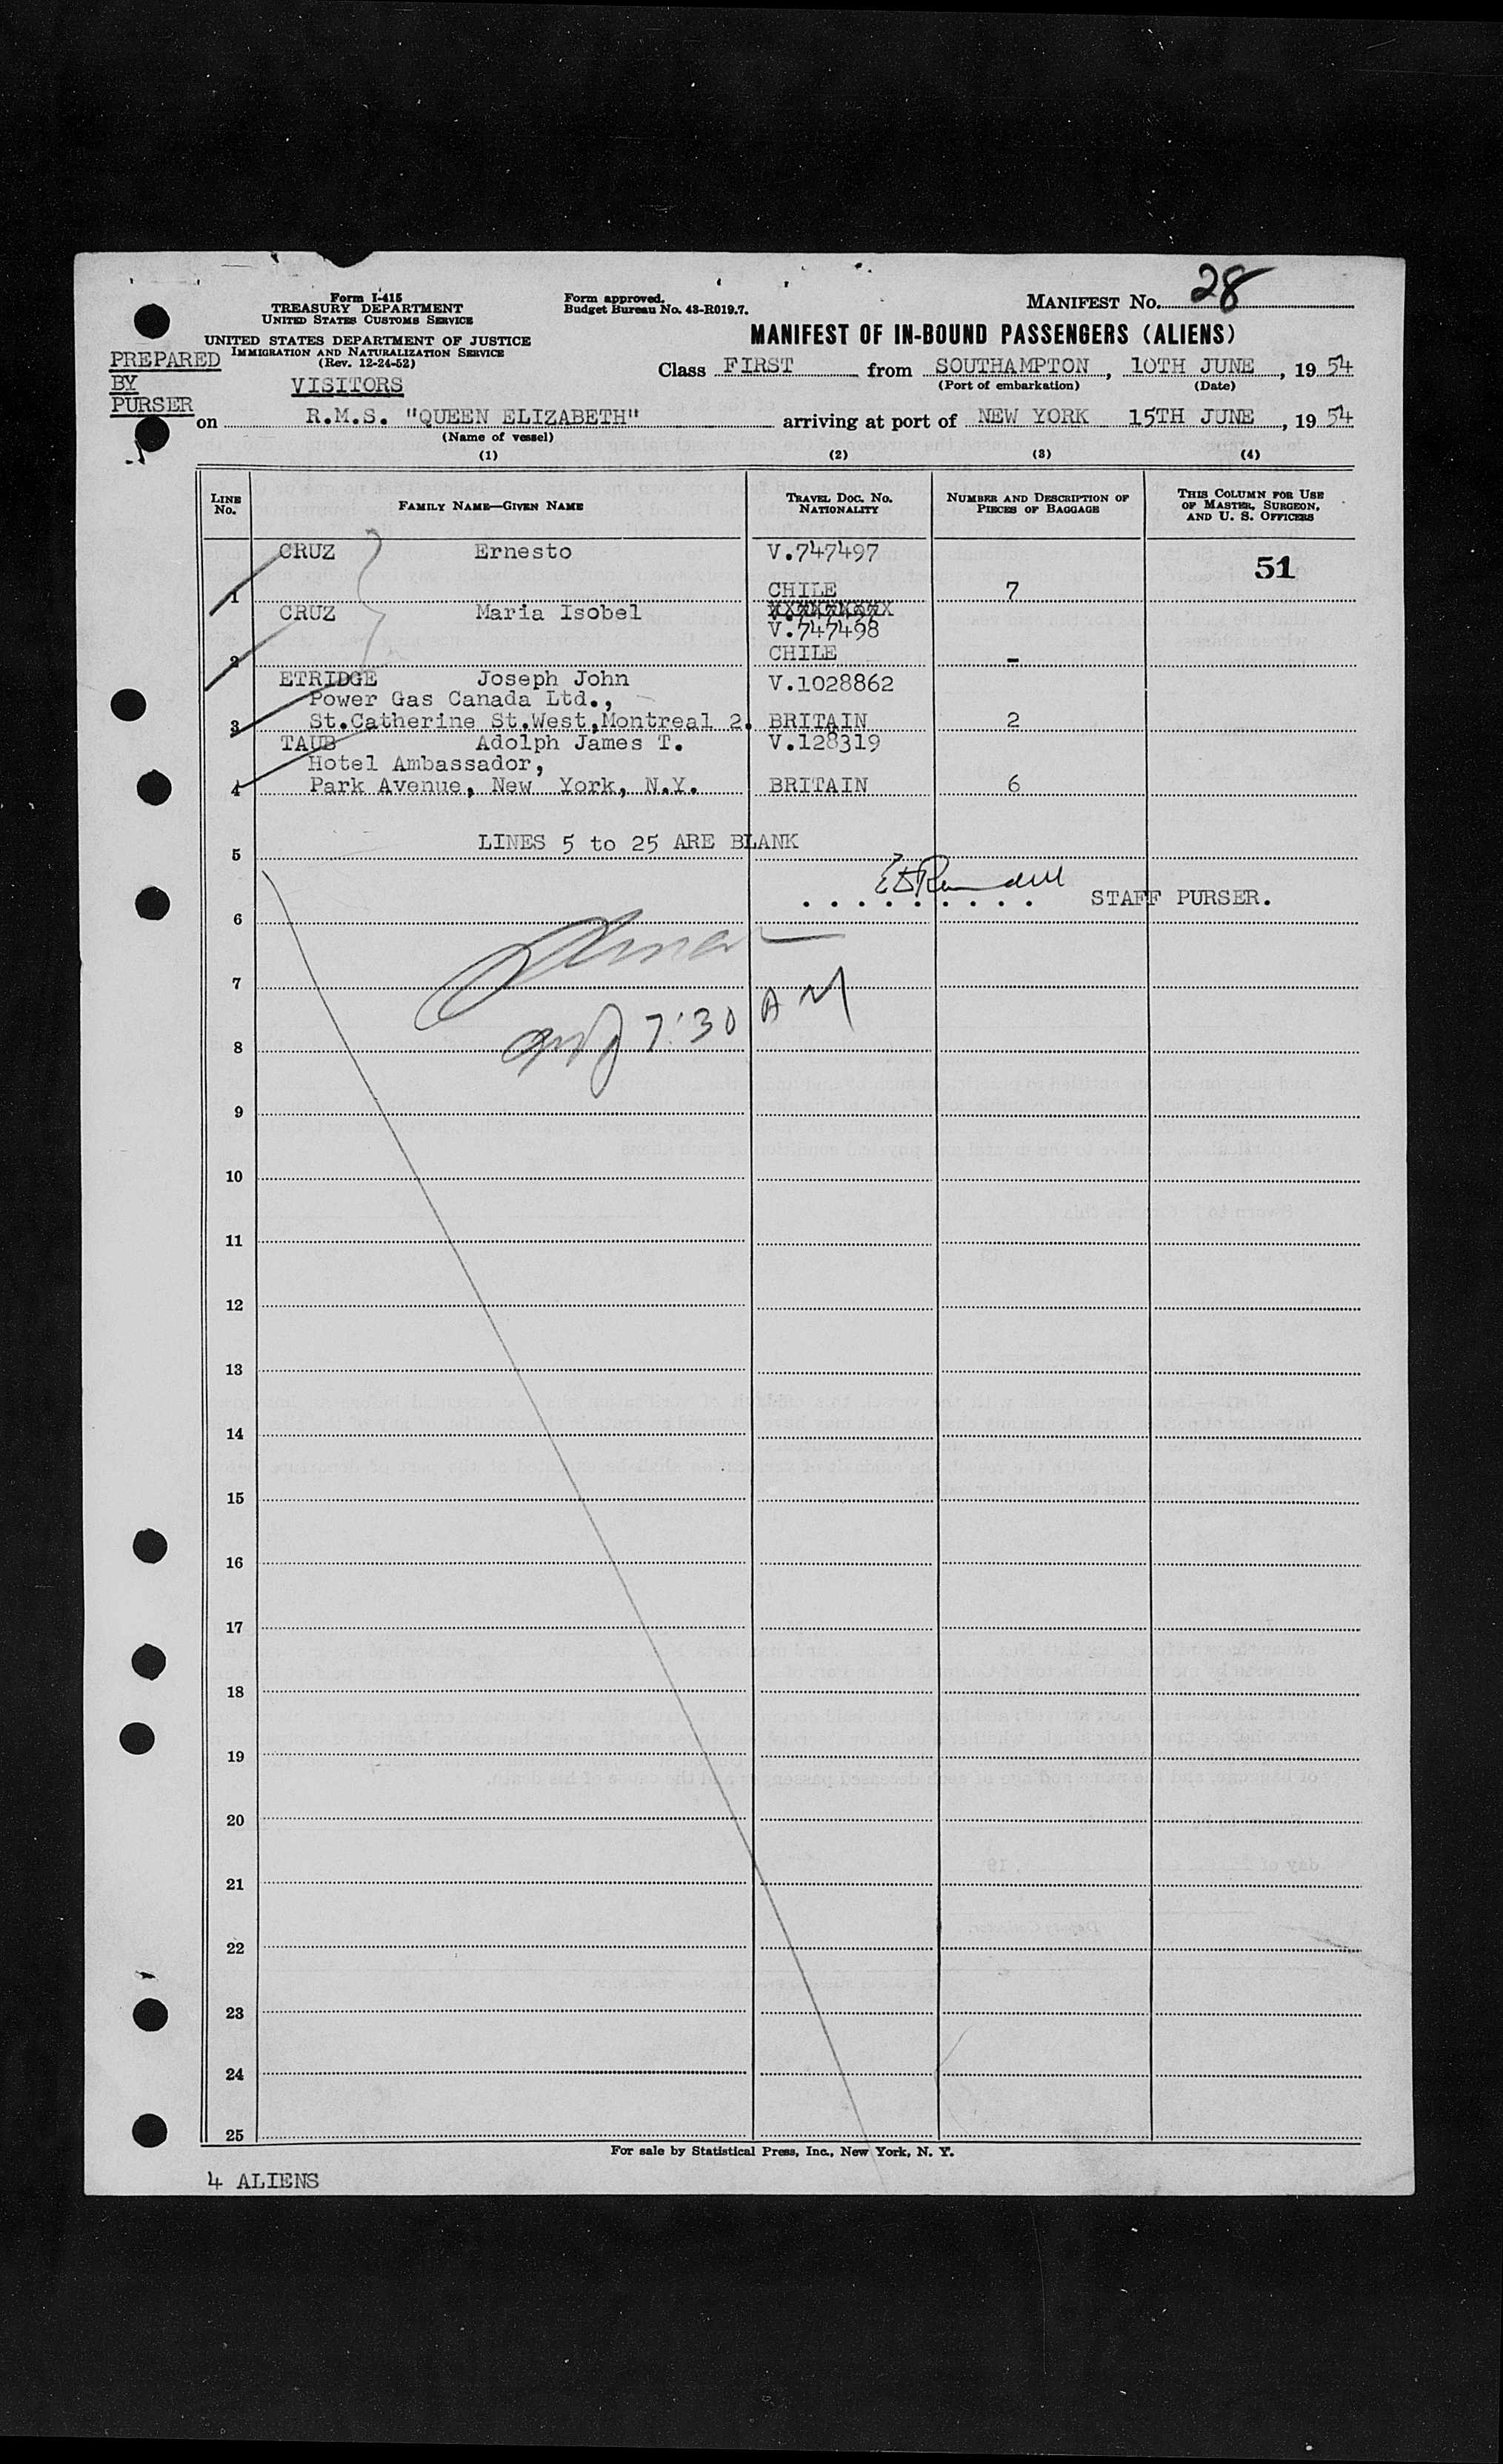 28
Form I-415
TREASURY DEPARTMENT
UNITED STATES CUSTOMS SERVICE
Form approved.
Budget Bureau No. 43-R019.7.
MANIFEST No.
UNITED STATES DEPARTMENT OF JUSTICE
IMMIGRATION AND NATURALIZATION SERVICE
(Rev. 12-24-52)
MANIFEST OF IN-BOUND PASSENGERS (ALIENS)
PREPARED
BY
PURSER
VISITORS
Class FIRST from SOUTHAMPTON, 10TH JUNE, 19 54
(Port of embarkation) (Date)
on R.M.S. "QUEEN ELIZABETH" arriving at port of NEW YORK 15TH JUNE, 19 54
(Name of vessel)
(1) (2) (3) (4)
LINE No. FAMILY NAME—GIVEN NAME TRAVEL DOC. NO. NATIONALITY NUMBER AND DESCRIPTION OF PIECES OF BAGGAGE THIS COLUMN FOR USE OF MASTER, SURGEON, AND U. S. OFFICERS
CRUZ Ernesto V.747497
51
1 CHILE 7
CRUZ Maria Isobel
V.747498
2 CHILE -
ETRIDGE Joseph John V.1028862
Power Gas Canada Ltd.,
3 St.Catherine St.West,Montreal 2. BRITAIN 2
TAUB Adolph James T. V.128319
Hotel Ambassador,
4 Park Avenue, New York, N.Y. BRITAIN 6
LINES 5 to 25 ARE BLANK
5
STAFF PURSER.
6
7
7:30 AM
8
9
10
11
12
13
14
15
16
17
18
19
20
21
22
23
24
25
For sale by Statistical Press, Inc., New York, N. Y.
4 ALIENS